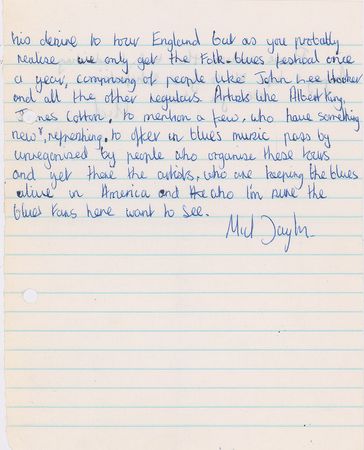 his desire to tour England but as you probably
realise we only get the Folk-blues festival once
a year, comprising of people like John Lee Hooker
and all the other regulars. Artists like Albert King,
James Cotton, to mention a few, who have something
new, refreshing, to offer in blues music pass by
unrecognised by people who organise these tours
and yet these the artists, who are keeping the blues
alive in America and who I'm sure the
blues fans here want to see.
Mick Taylor